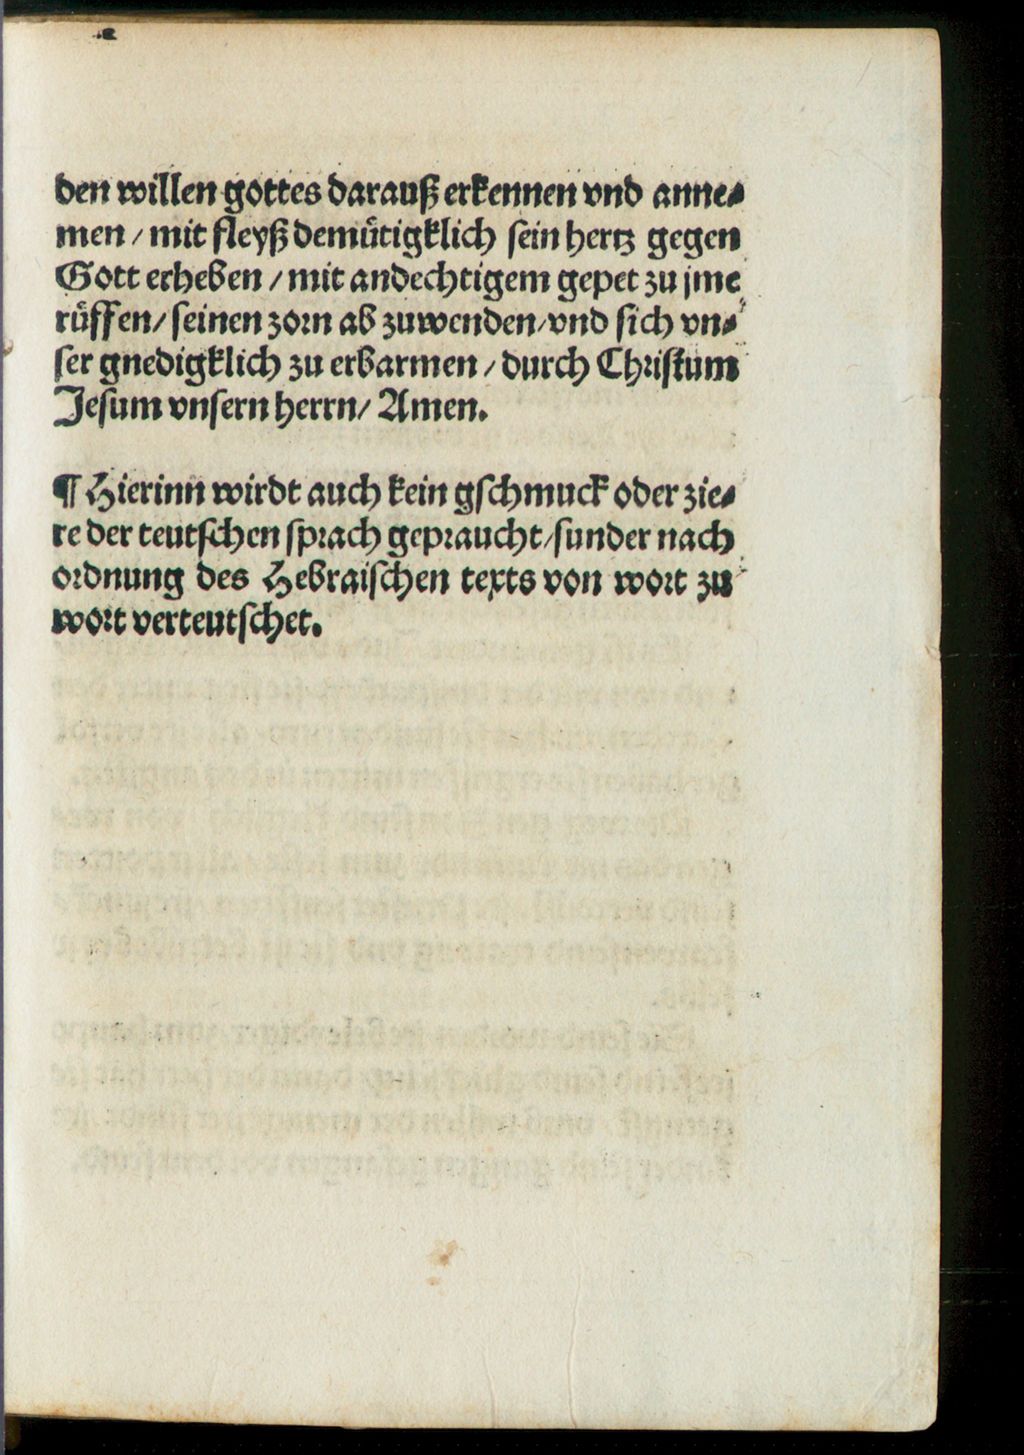 den willen gottes darauß erkennen vnd anne⸗
men / mit fleyß demuͤtigklich sein hertz gegen
Gott erheben / mit andechtigem gepet zu jme
ruͤffen / seinen zorn ab zuwenden / vnd sich vn⸗
ser gnedigklich zu erbarmen / durch Christum
Jesum vnsern herrn / Amen.
¶ Hierinn wirdt auch kein gschmuck oder zie⸗
re der teutschen sprach gepraucht / sunder nach
ordnung des Hebraischen texts von wort zu
wort verteutschet.